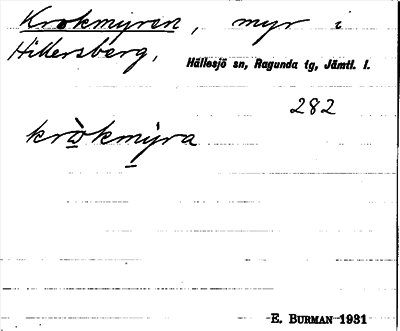 Krokmyren, myr i
Hillersberg,
Hällesjö sn, Ragunda tg, Jämtl. l.
282
kròkmýra
E. Burman 1931